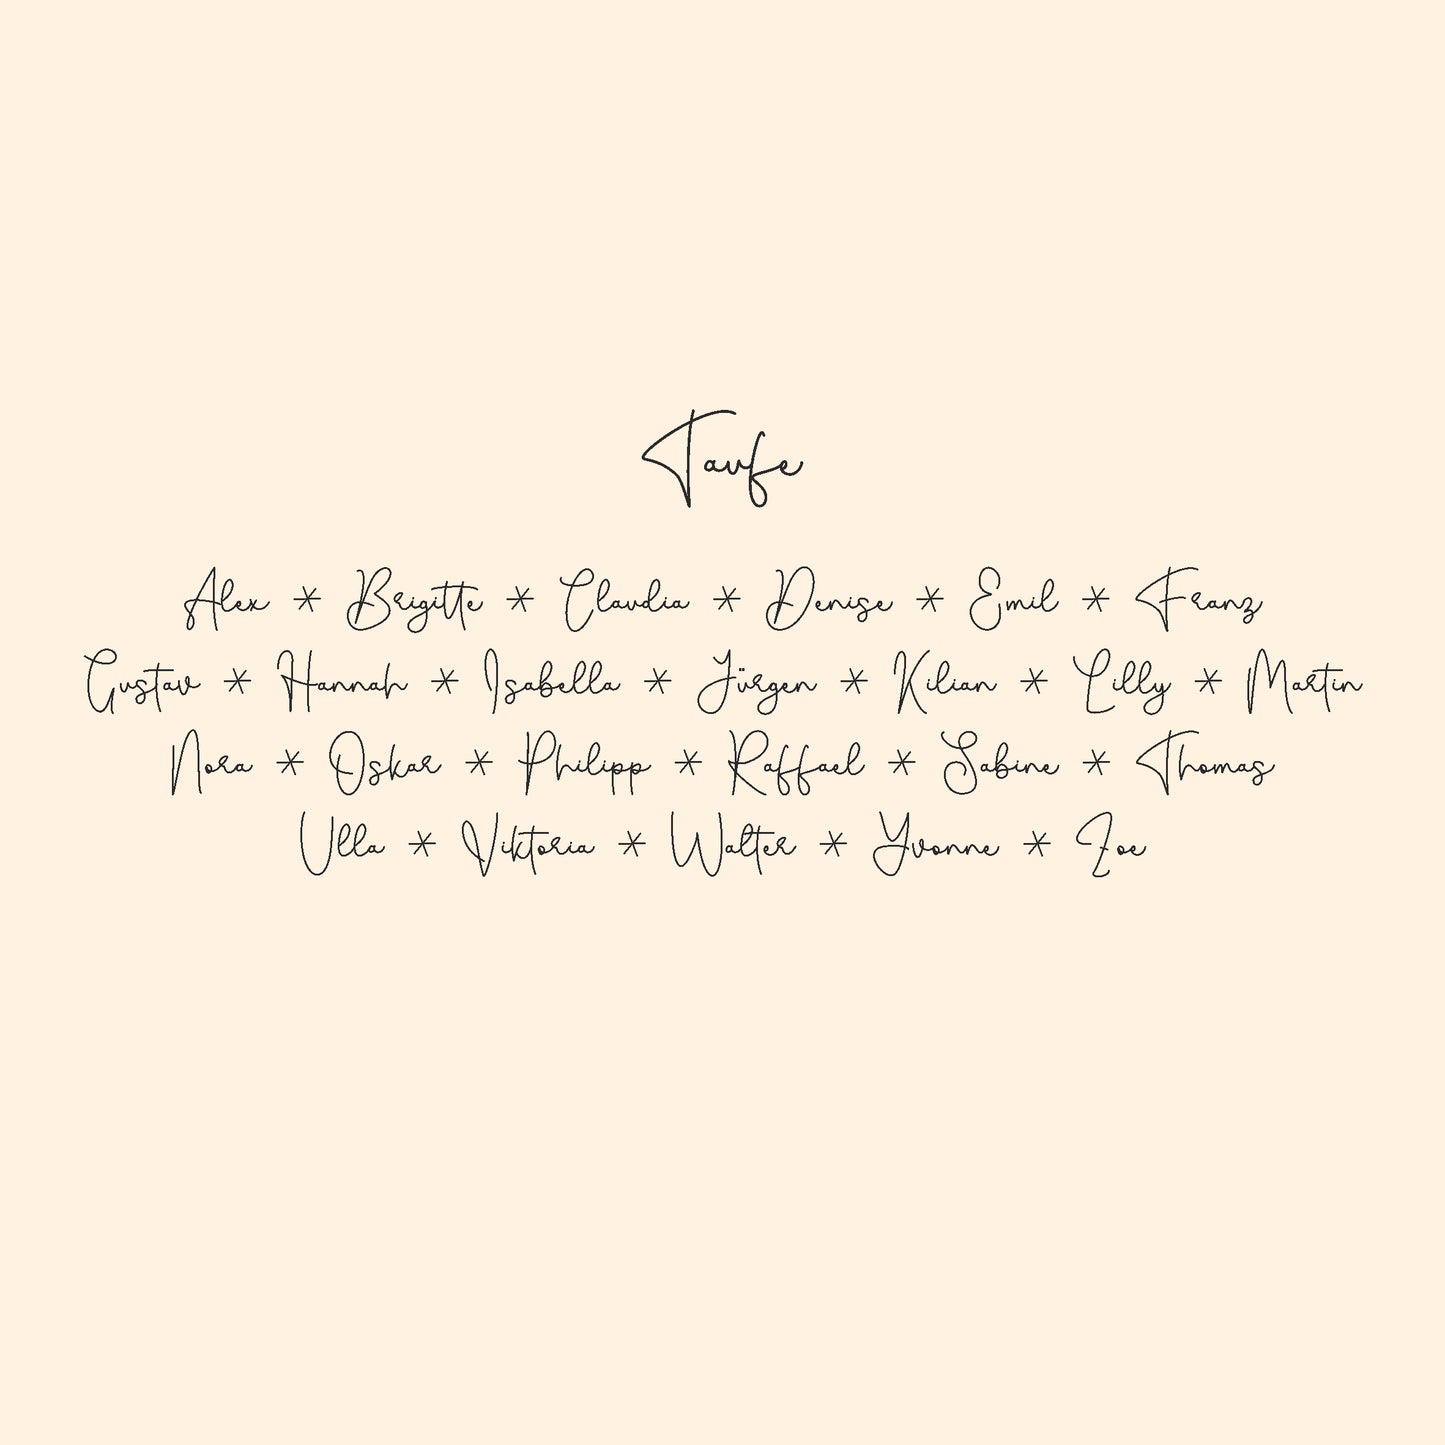 Taufe
Alex * Brigitte * Claudia * Denise * Emil * Franz
Gustav * Hannah * Isabella * Jürgen * Kilian * Lilly * Martin
Nora * Oskar * Philipp * Raffael * Sabine * Thomas
Ulla * Viktoria * Walter * Yvonne * Zoe